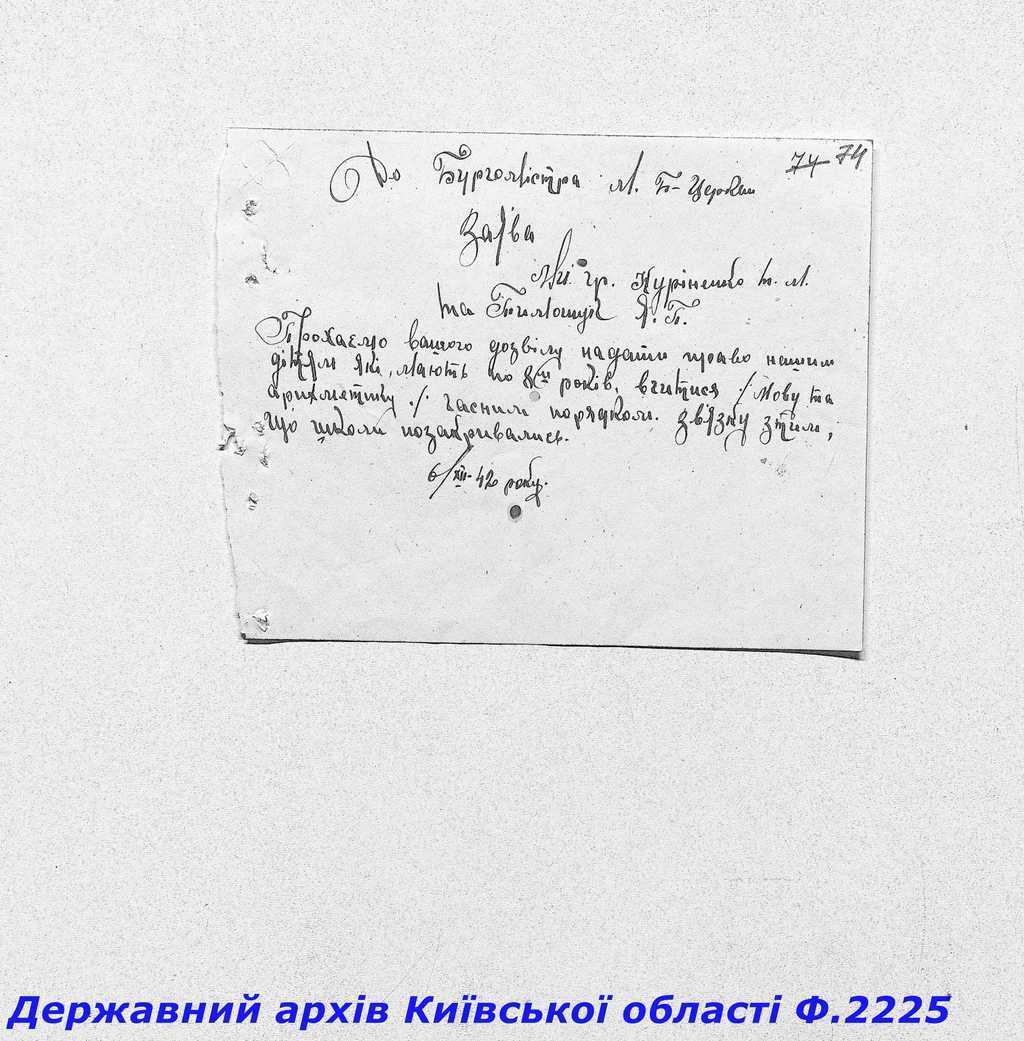 74 74
До Бургомістра м. Б-Церкви
Заява
гр. Куріненко т. м.
та Я. П.
Прохаємо вашого дозвілу надати право нашим
дітям які, мають по 8м років, вчитися /мову та
арихметіку./ часним порядком. Звязку зтим,
що школи позакривались.
6/XII-42 року.
Державний архів Київської області Ф.2225